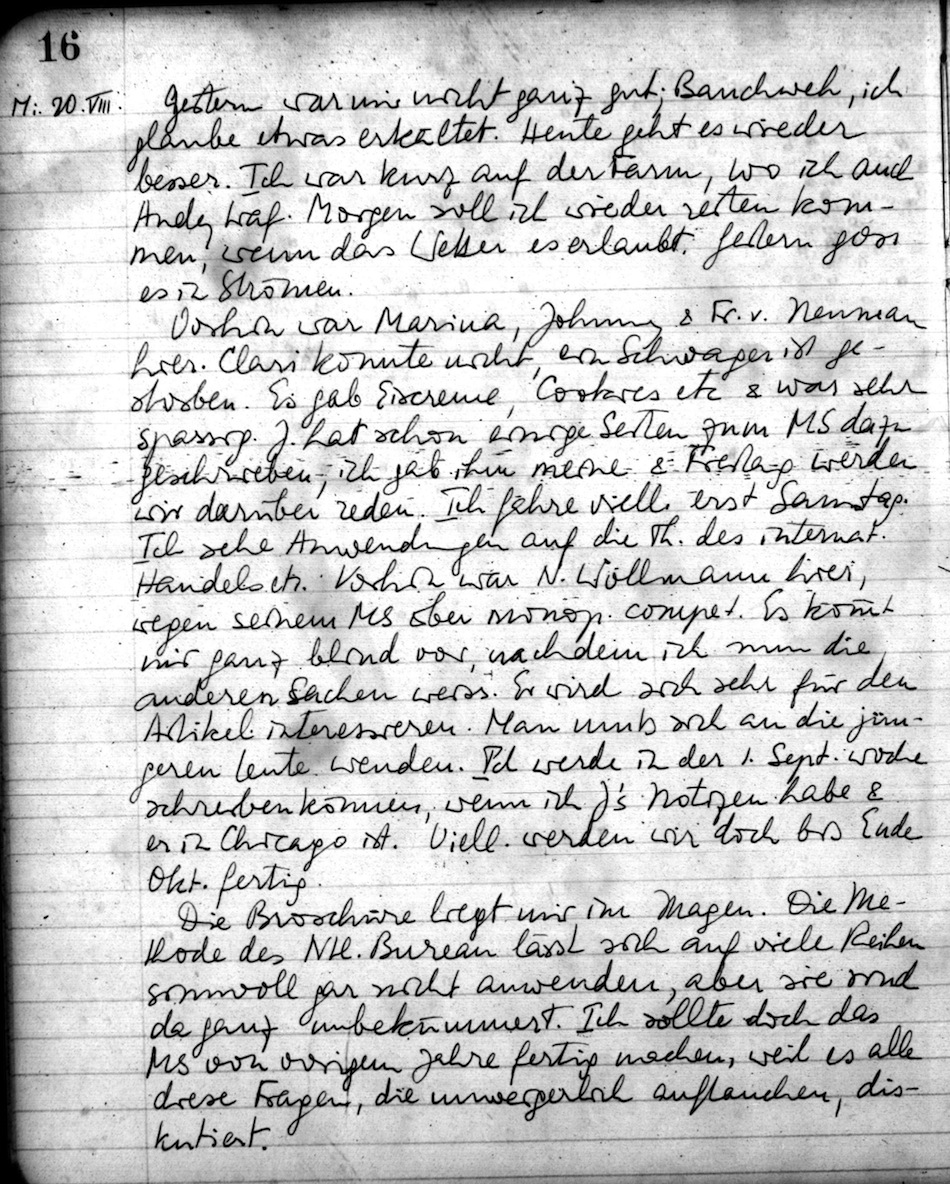 16
Mi. 20. VIII. Gestern war mir nicht ganz gut; Bauchweh, ich
glaube etwas erkältet. Heute geht es wieder
besser. Ich war kurz auf der Farm, wo ich auch
Andy traf. Morgen soll ich wieder reiten kom-
men, wenn das Wetter es erlaubt. Gestern goss
es in Strömen.
Vorhin war Marina, Johnny & Fr. v. Neuman
hier. Clari konnte nicht, ein Schwager ist ge-
storben. Es gab Eiscreme, Cookies etc & war sehr
spassig. J. hat schon einige Seiten zum MS dazu
geschrieben, ich gab ihm meine & Freitag werden
wir darüber reden. Ich fahre viell. erst Samstag.
Ich sehe Anwendungen auf die Th. des internat.
Handels etc. Vorhin war N. Wollmann hier,
wegen seinem MS über monop. compet. Es kommt
mir ganz blind vor, nachdem ich nun die
anderen Sachen weiss. Er wird sich sehr für den
Artikel interessieren. Man muss sich an die jün-
geren Leute wenden. Ich werde in der 1. Sept. woche
schreiben können, wenn ich J's Notizen habe &
er in Chicago ist. Viell. werden wir doch bis Ende
Okt. fertig.
Die Broschüre liegt mir im Magen. Die Me-
thode des Ntl. Bureau lässt sich auf viele Reihen
sinnvoll gar nicht anwenden, aber sie sind
da ganz unbekümmert. Ich sollte doch das
MS von vorigem Jahre fertig machen, weil es alle
diese Fragen, die unweigerlich auftauchen, dis-
kutiert.